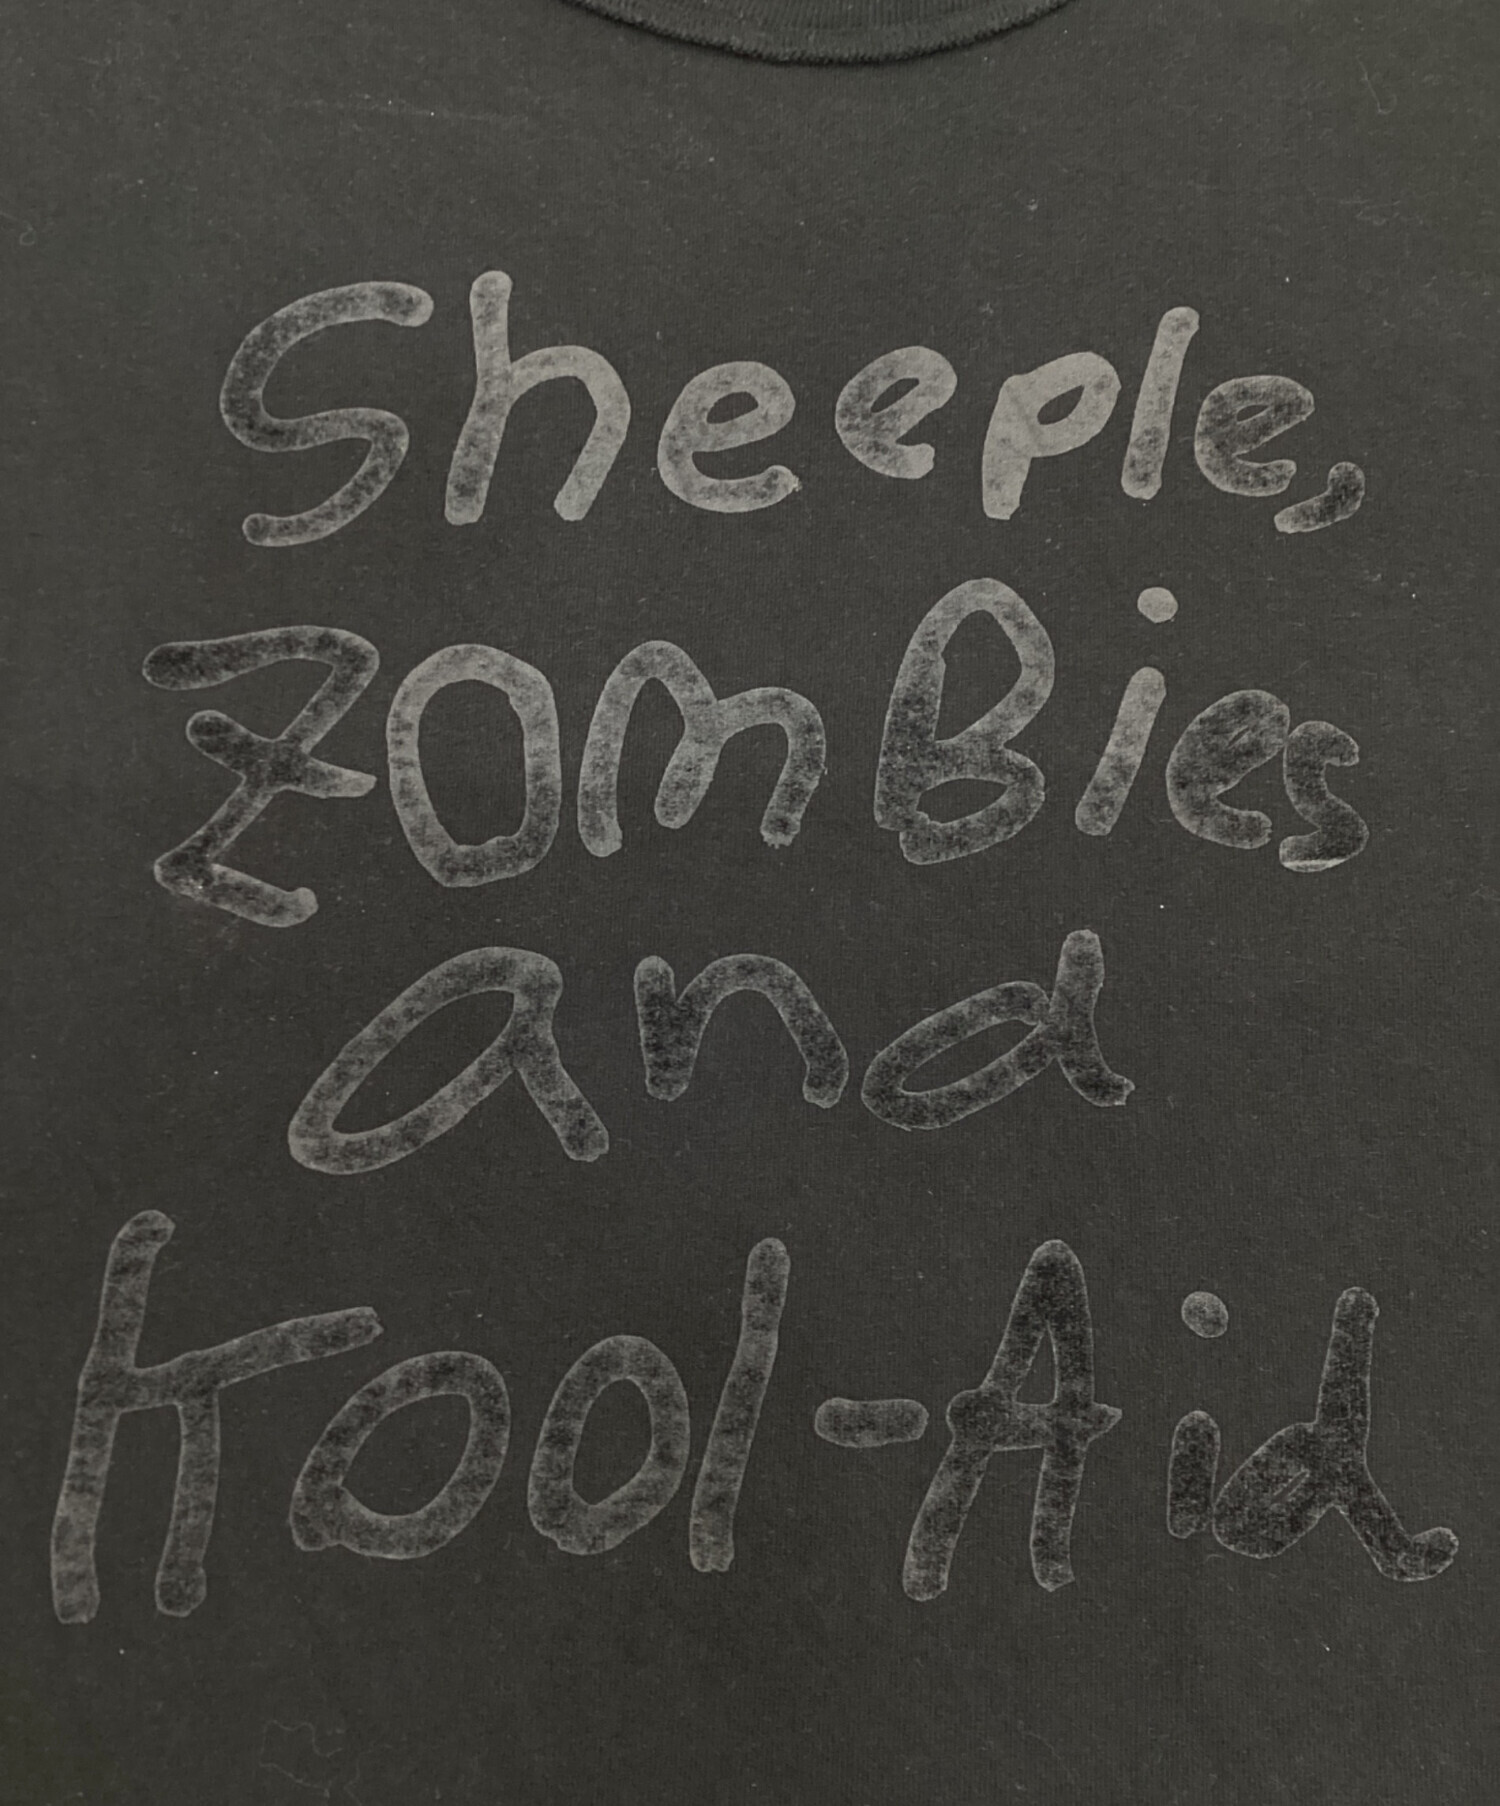 Sheeple,
ZomBies
and
Kool-Aid